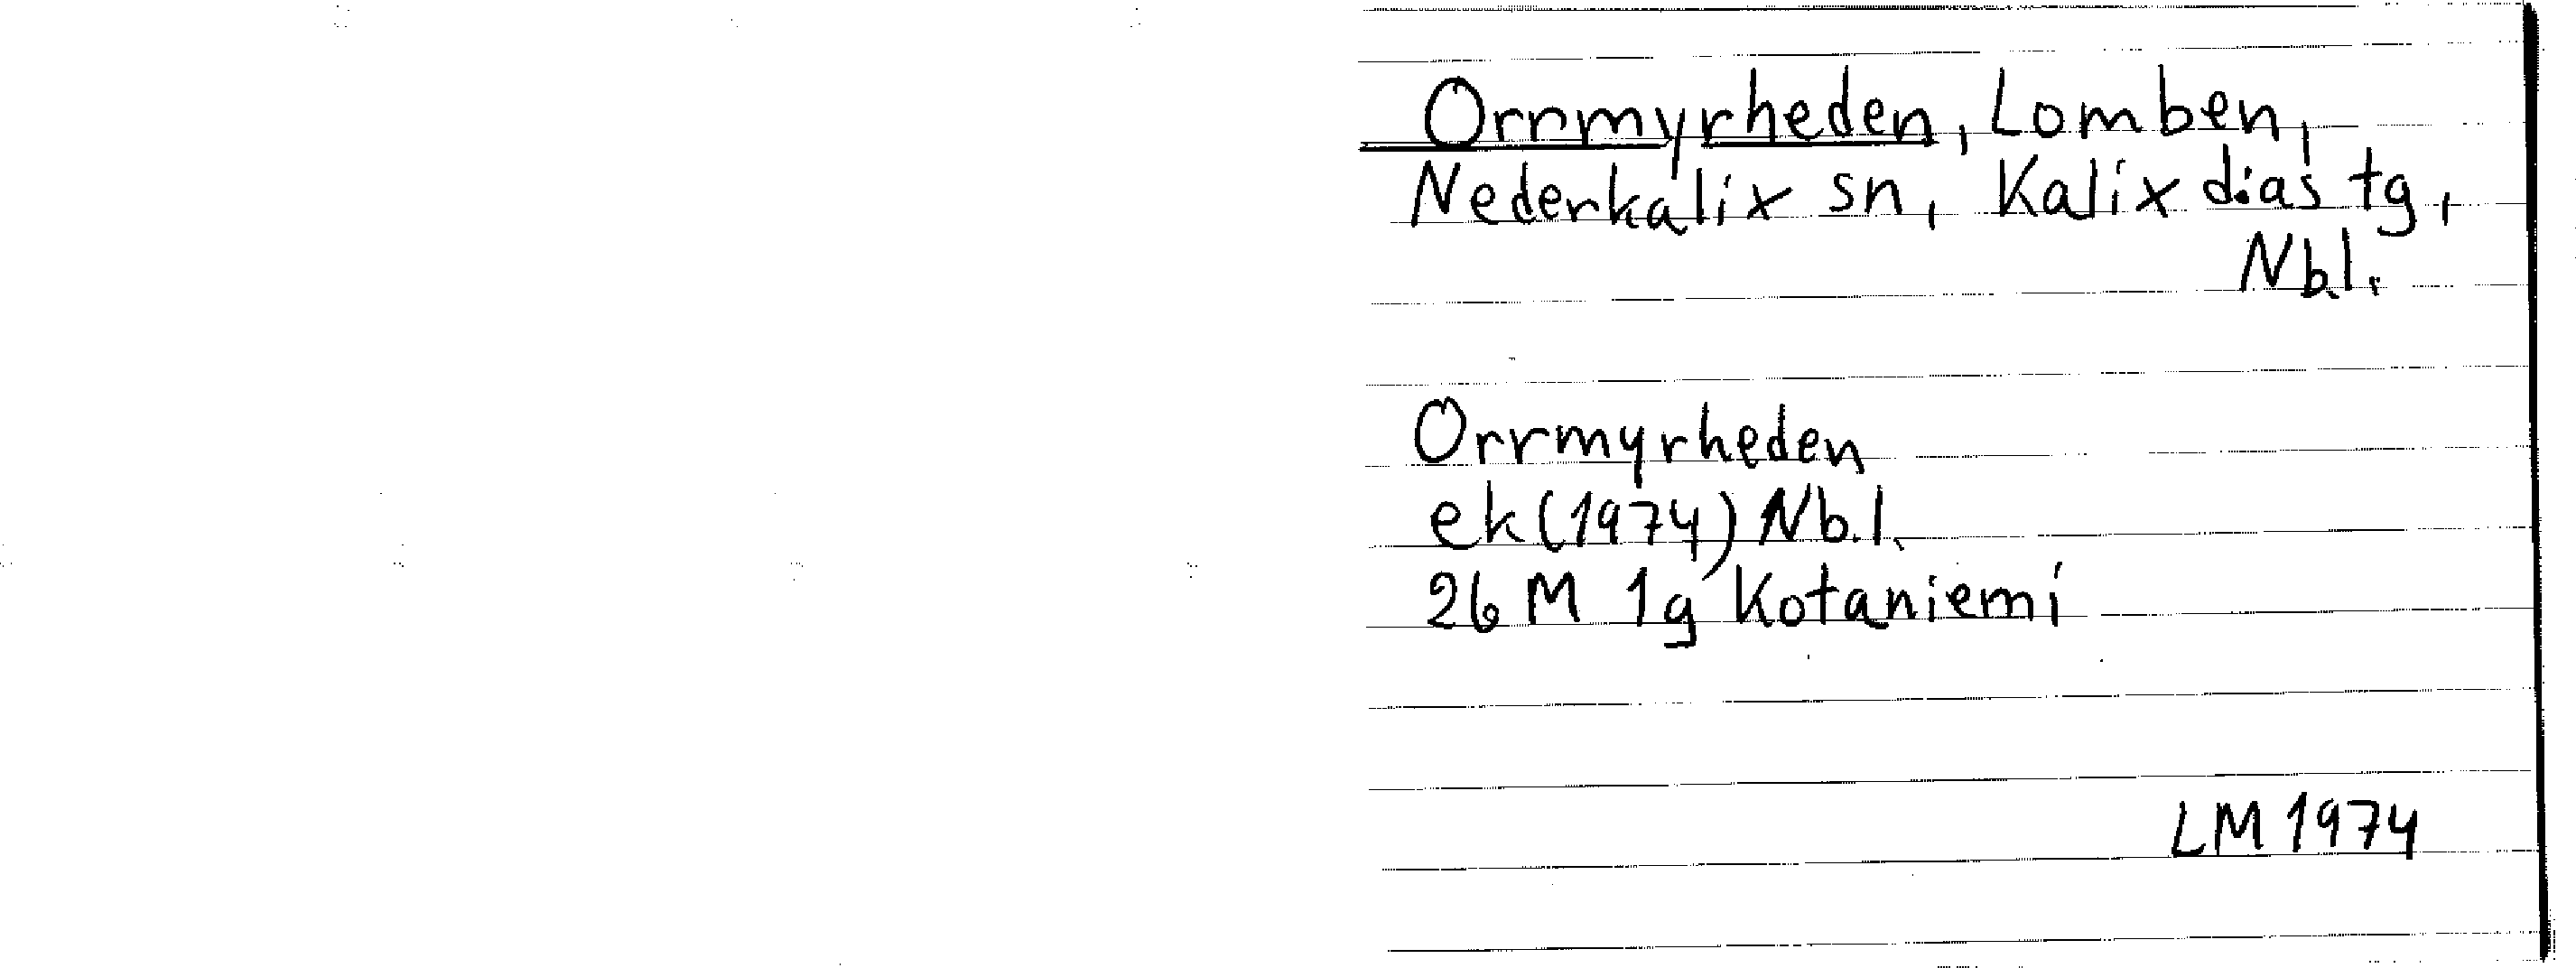 Orrmyrheden, Lomben,
Nederkalix sn, Kalix tg,
Nb.l.
Orrmyrheden
ek (1974) Nb.l.
26 M 1g Kotaniemi
LM 1974